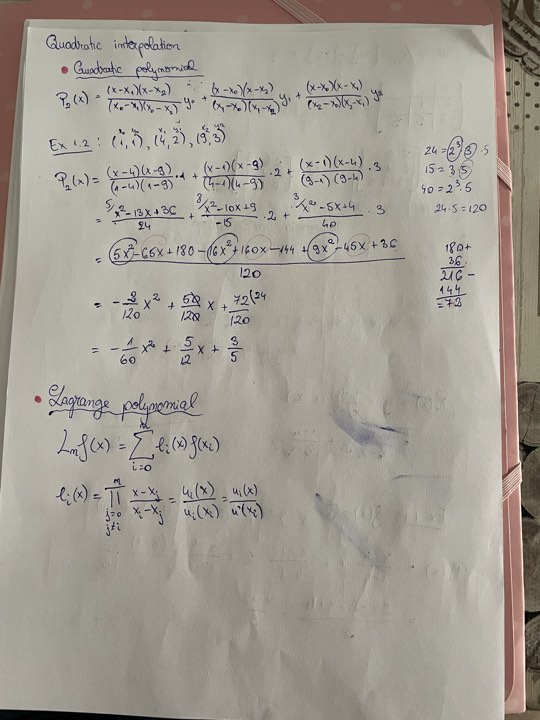 Quadratic interpolation
• Quadratic polynomial
P₂(x) = (x-x₁)(x-x₂)/(x₀-x₁)(x₀-x₂) y₀ + (x-x₀)(x-x₂)/(x₁-x₀)(x₁-x₂) y₁ + (x-x₀)(x-x₁)/(x₂-x₀)(x₂-x₁) y₂
x₀ y₀ x₁ y₁ x₂ y₂
Ex 1.2 : (1,1), (4,2), (9,3)
P₂(x) = (x-4)(x-9)/(1-4)(1-9) · 1 + (x-1)(x-9)/(4-1)(4-9) · 2 + (x-1)(x-4)/(9-1)(9-4) · 3
= 5/ x²-13x+36/24 + 8/ x²-10x+9/-15 · 2 + 3/ x²-5x+4/40 · 3
= 5x²-65x+180-16x²+160x-144+9x²-45x+36/120
= -2/120 x² + 50/120 x + 72(24/120
= -1/60 x² + 5/12 x + 3/5
24 = 2³·3 ·5
15 = 3·5
40 = 2³·5
24·5=120
180+
36
216-
144
=72
• Lagrange polynomial
Lₙf(x) = ∑ᵢ₌₀ⁿ lᵢ(x) f(xᵢ)
lᵢ(x) = ∏ⁿ j=0 j≠i x-xⱼ/xᵢ-xⱼ = uᵢ(x)/uᵢ(xᵢ) = uᵢ(x)/u'(xᵢ)